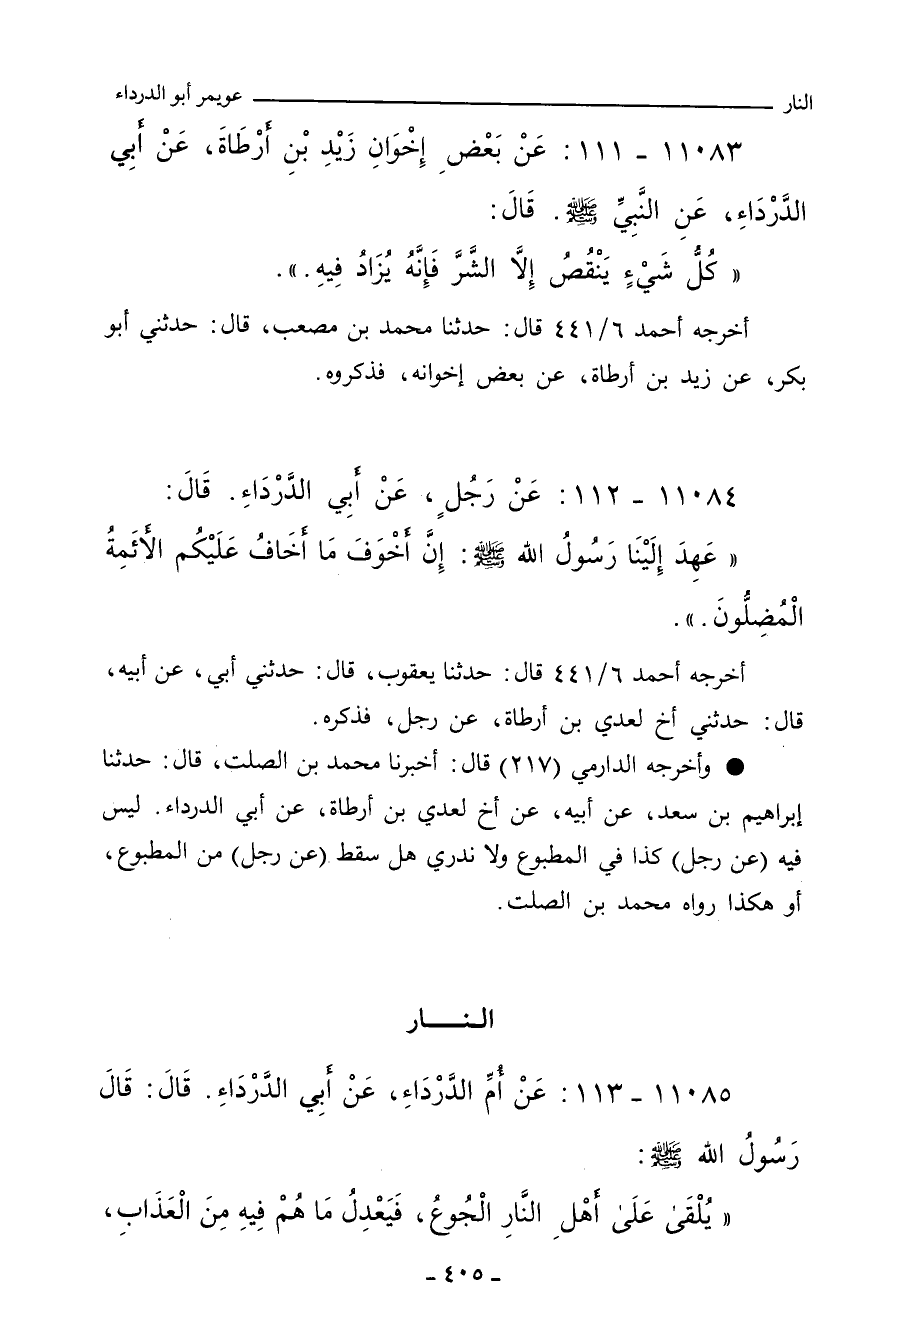 النار ــــــــــــــــــــ عويمر أبو الدرداء
١١٠٨٣ - ١١١ : عَنْ بَعْضِ إِخْوَانِ زَيْدِ بْنِ أَرْطَاةَ، عَنْ أَبِي
الدَّرْدَاءِ، عَنِ النَّبِيِّ ﷺ. قَالَ:
« كُلُّ شَيْءٍ يَنْقُصُ إِلَّا الشَّرَّ فَإِنَّهُ يُزَادُ فِيهِ.».
أخرجه أحمد ٤٤١/٦ قال: حدثنا محمد بن مصعب، قال: حدثني أبو
بكر، عن زيد بن أرطاة، عن بعض إخوانه، فذكروه.
١١٠٨٤ - ١١٢ : عَنْ رَجُلٍ، عَنْ أَبِي الدَّرْدَاءِ. قَالَ:
« عَهِدَ إِلَيْنَا رَسُولُ الله ﷺ: إِنَّ أَخْوَفَ مَا أَخَافُ عَلَيْكُم الأَئَمِةُ
الْمُضِلُّونَ.».
أخرجه أحمد ٤٤١/٦ قال: حدثنا يعقوب، قال: حدثني أبي، عن أبيه،
قال: حدثني أخ لعدي بن أرطاة، عن رجل، فذكره.
● وأخرجه الدارمي (٢١٧) قال: أخبرنا محمد بن الصلت، قال: حدثنا
إبراهيم بن سعد، عن أبيه، عن أخ لعدي بن أرطاة، عن أبي الدرداء. ليس
فيه (عن رجل) كذا في المطبوع ولا ندري هل سقط (عن رجل) من المطبوع،
أو هكذا رواه محمد بن الصلت.
النـــار
١١٠٨٥ - ١١٣ : عَنْ أُمِّ الدَّرْدَاءِ، عَنْ أَبِي الدَّرْدَاءِ. قَالَ: قَالَ
رَسُولُ الله ﷺ:
« يُلْقىٰ عَلَىٰ أَهْلِ النَّارِ الْجُوعُ، فَيَعْدِلُ مَا هُمْ فِيهِ مِنَ الْعَذَابِ،
- ٤٠٥ -